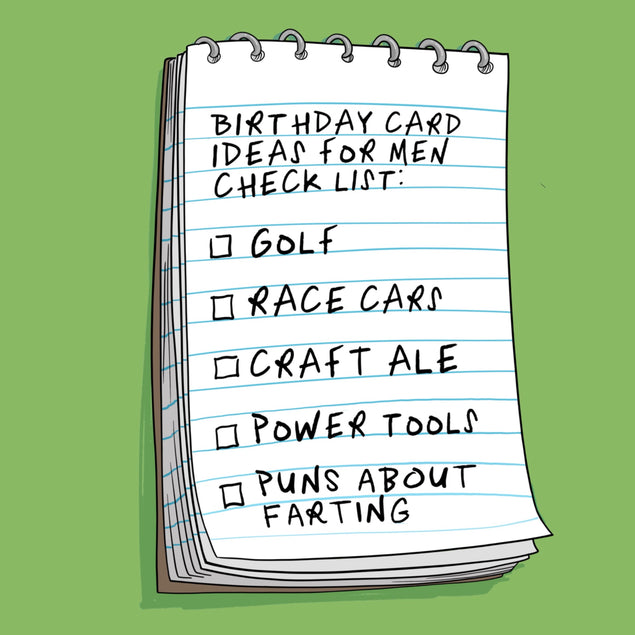 BIRTHDAY CARD
IDEAS FOR MEN
CHECK LIST:
GOLF
RACE CARS
CRAFT ALE
POWER TOOLS
PUNS ABOUT
FARTING